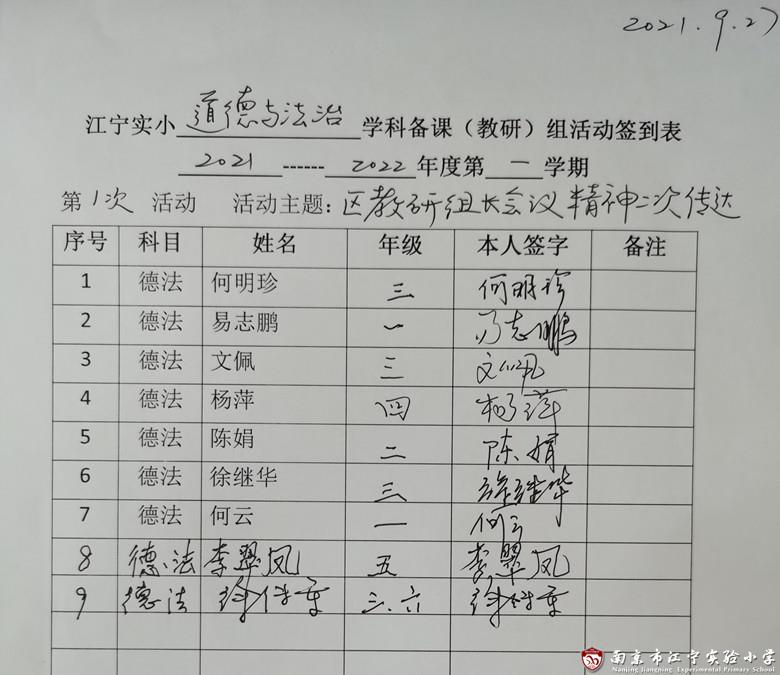 2021.9.27
江宁实小道德与法治学科备课（教研）组活动签到表
2021------2022年度第一学期
第1次 活动 活动主题：区教研组长会议精神二次传达
序号 科目 姓名 年级 本人签字 备注
1 德法 何明珍 三 何明珍
2 德法 易志鹏 一 易志鹏
3 德法 文佩 三 文佩
4 德法 杨萍 四 杨萍
5 德法 陈娟 二 陈娟
6 德法 徐继华 三 徐继华
7 德法 何云 一 何云
8 德法 李翠凤 五 李翠凤
9 德法 三、六
南京市江宁实验小学
Nanjing Jiangning Experimental Primary School